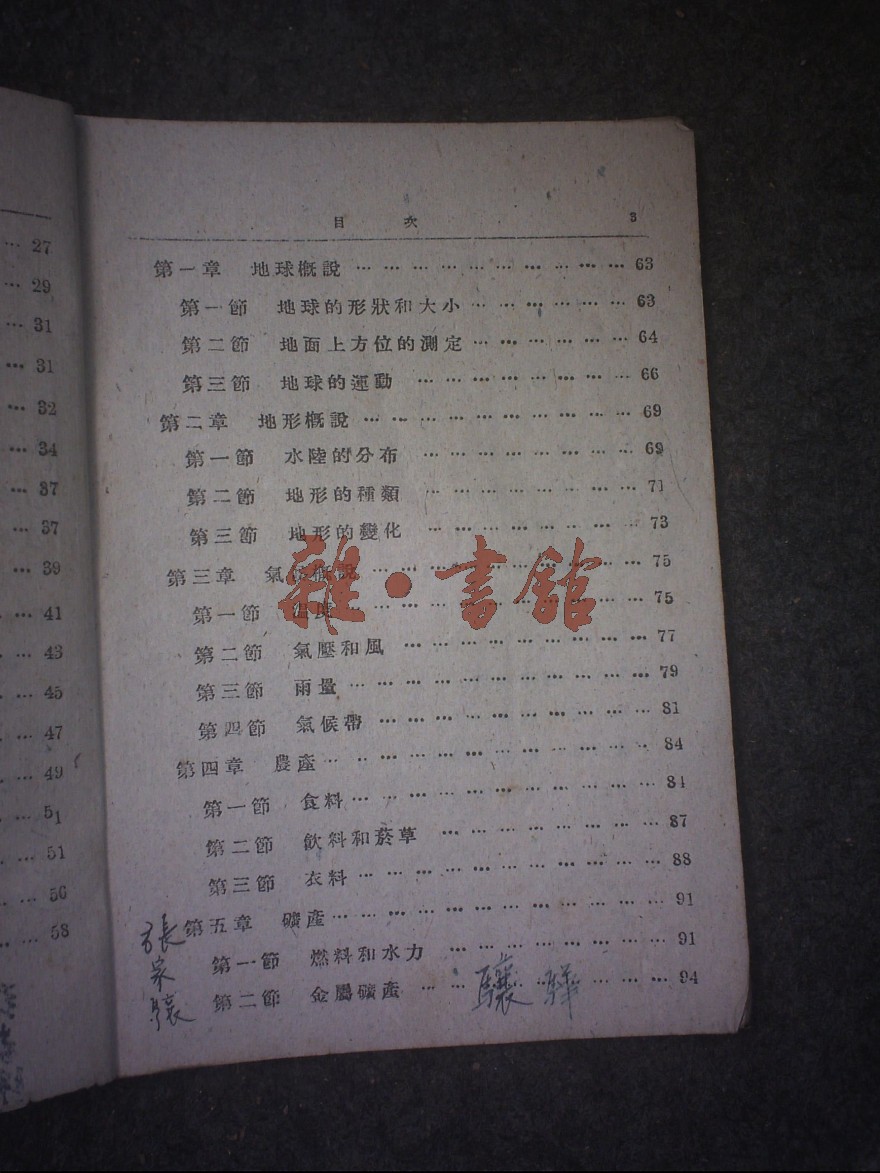 27
29
31
31
32
34
37
37
39
41
43
45
47
49
51
51
56
58
目 次 3
第一章 地球概說 … … … … … … … … … … 63
第一節 地球的形狀和大小 … … … … … … 63
第二節 地面上方位的測定 … … … … … … 64
第三節 地球的運動 … … … … … … … … 66
第二章 地形概說 … … … … … … … … … … 69
第一節 水陸的分布 … … … … … … … … 69
第二節 地形的種類 … … … … … … … … 71
第三節 地形的變化 … … … … … … … … 73
第三章 氣候概說 … … … … … … … … … … 75
第一節 溫度 … … … … … … … … … … 75
第二節 氣壓和風 … … … … … … … … … 77
第三節 雨量 … … … … … … … … … … … 79
第四節 氣候帶 … … … … … … … … … … 81
第四章 農產 … … … … … … … … … … … … 84
第一節 食料 … … … … … … … … … … … 84
第二節 飲料和菸草 … … … … … … … … 87
第三節 衣料 … … … … … … … … … … … 88
第五章 礦產 … … … … … … … … … … … … 91
第一節 燃料和水力 … … … … … … … … 91
第二節 金屬礦產 … … … … … … … … … 94
張家驤
驤 驊
雜·書館